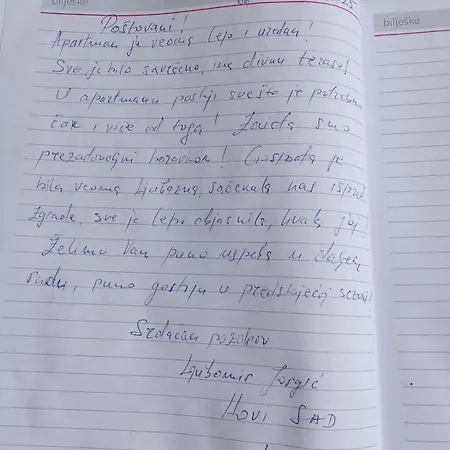 bilješke
25
bilješke
Poštovani!
Apartman je veoma lep i uredan!
Sve je bilo savršeno, ima divnu terasu!
U apartmanu postoji sve što je potrebno
čak i više od toga! Zaista smo
prezadovoljni boravkom! Gospođa je
bila veoma ljubazna, sačekala nas ispred
zgrade, sve je lepo objasnila, hvala joj!
Želimo Vam puno uspeha u daljem
radu, puno gostiju u predstojećoj sezoni!
Srdačan pozdrav
Ljubomir
Novi SAD